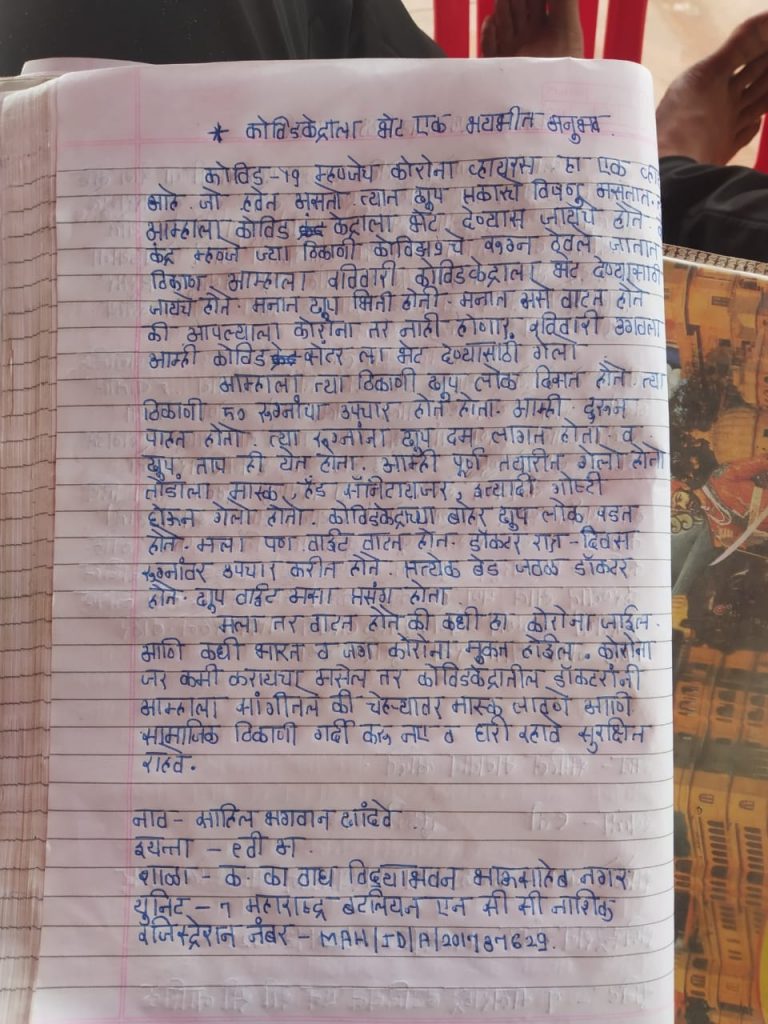 * कोविडकेंद्राला भेट एक भयभीत अनुभव.
कोविड-१९ म्हणजेच कोरोना व्हायरस हा एक
आहे. जो हवेत असतो. त्यात खुप प्रकारचे विषाणु असतात.
आम्हाला कोविड केंद्राला भेट देण्यास जायचे होते.
केंद्र म्हणजे ज्या ठिकाणी कोविड१९चे रुग्न ठेवले जातात
ठिकाण. आम्हाला रविवारी कोविडकेंद्राला भेट देण्यासाठी
जायचे होते. मनात खुप भिती होती. मनात असे वाटत होते
की आपल्याला कोरोना तर नाही होणार. रविवारी उगवला
आम्ही कोविड सेंटर ला भेट देण्यासाठी गेलो
आम्हाला त्या ठिकाणी खुप लोक दिसत होते. त्या
ठिकाणी ५० रुग्नांचा उपचार होत होता. आम्ही दुरून
पाहत होतो. त्या रुग्नांना खुप दम लागत होता. व
खुप ताप ही येत होता. आम्ही पूर्ण तयारीत गेलो होतो
तोंडाला मास्क, हॅंड सॅनिटायजर, इत्यादी गोष्टी
घेऊन गेलो होतो. कोविडकेंद्राच्या बाहेर खुप लोक रडत
होते. मला पण वाईट वाटत होत. डॉक्टर रात्र-दिवस
रुग्नांवर उपचार करीत होते. प्रत्येक बेड जवळ डॉक्टर
होते. खुप वाईट असा प्रसंग होता
मला तर वाटत होते की कधी हा कोरोना जाईल.
आणि कधी भारत व जग कोरोना मुक्त होईल. कोरोना
जर कमी करायचा असेल तर कोविडकेंद्रातील डॉक्टरांनी
आम्हाला सांगीतले की चेहऱ्यावर मास्क लावणे आणि
सामाजिक ठिकाणी गर्दी करू नए व घरी रहावे सुरक्षित
राहवे.
नाव - साहिल भगवान
इयत्ता - ९वी अ.
शाळा - क. का वाघ विद्याभवन भाऊसाहेब नगर
युनिट - ७ महाराष्ट्र बटालियन एन सी सी नाशिक
रजिस्ट्रेशन नंबर - MAH/JD/A/